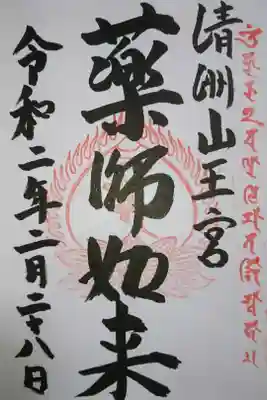 清洲山王宮
藥師如来
令和二年二月二十八日